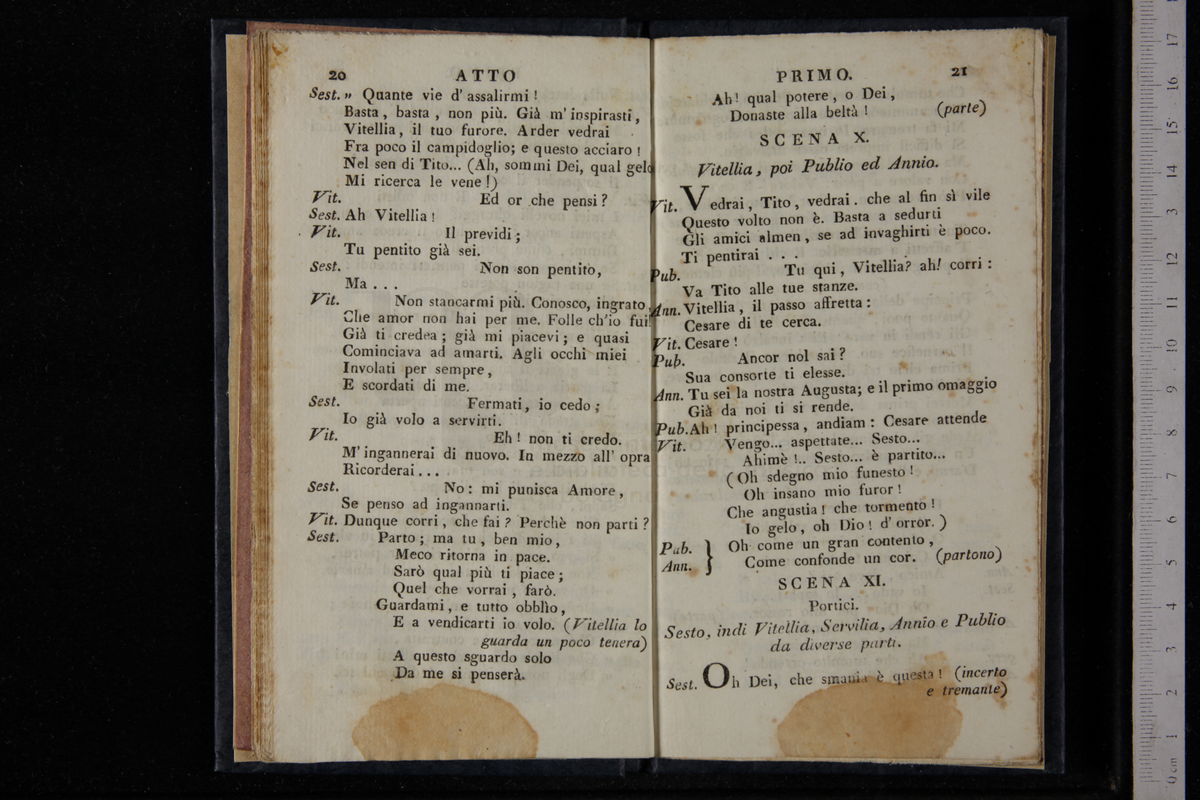 20 ATTO
Sest. „ Quante vie d' assalirmi !
Basta , basta , non più. Già m' inspirasti ,
Vitellia , il tuo furore. Arder vedrai
Fra poco il campidoglio; e questo acciaro !
Nel sen di Tito... (Ah, sommi Dei, qual gelo
Mi ricerca le vene !)
Vit. Ed or che pensi ?
Sest. Ah Vitellia !
Vit. Il previdi ;
Tu pentito già sei.
Sest. Non son pentito,
Ma . . .
Vit. Non stancarmi più. Conosco, ingrato,
Che amor non hai per me. Folle ch'io fui!
Già ti credea ; già mi piacevi ; e quasi
Cominciava ad amarti. Agli occhi miei
Involati per sempre ,
E scordati di me.
Sest. Fermati, io cedo ;
Io già volo a servirti.
Vit. Eh ! non ti credo.
M' ingannerai di nuovo. In mezzo all' opra
Ricorderai . . .
Sest. No : mi punisca Amore ,
Se penso ad ingannarti.
Vit. Dunque corri , che fai ? Perchè non parti ?
Sest. Parto ; ma tu , ben mio,
Meco ritorna in pace.
Sarò qual più ti piace ;
Quel che vorrai , farò.
Guardami , e tutto obblìo,
E a vendicarti io volo. (Vitellia lo
guarda un poco tenera)
A questo sguardo solo
Da me si penserà.
PRIMO. 21
Ah! qual potere , o Dei ,
Donaste alla beltà ! (parte)
SCENA X.
Vitellia , poi Publio ed Annio.
Vit. Vedrai , Tito , vedrai . che al fin sì vile
Questo volto non è. Basta a sedurti
Gli amici almen , se ad invaghirti è poco.
Ti pentirai . . .
Pub. Tu qui , Vitellia? ah! corri :
Va Tito alle tue stanze.
Ann. Vitellia , il passo affretta :
Cesare di te cerca.
Vit. Cesare !
Pub. Ancor nol sai ?
Sua consorte ti elesse.
Ann. Tu sei la nostra Augusta; e il primo omaggio
Già da noi ti si rende.
Pub. Ah ! principessa , andiam : Cesare attende
Vit. Vengo... aspettate... Sesto...
Ahimè !.. Sesto... è partito...
( Oh sdegno mio funesto !
Oh insano mio furor !
Che angustia ! che tormento !
Io gelo , oh Dio ! d' orror. )
Pub. } Oh come un gran contento ,
Ann. } Come confonde un cor. (partono)
SCENA XI.
Portici.
Sesto, indi Vitellia, Servilia, Annio e Publio
da diverse parti.
Sest. Oh Dei, che smania è questa ! (incerto
e tremante)